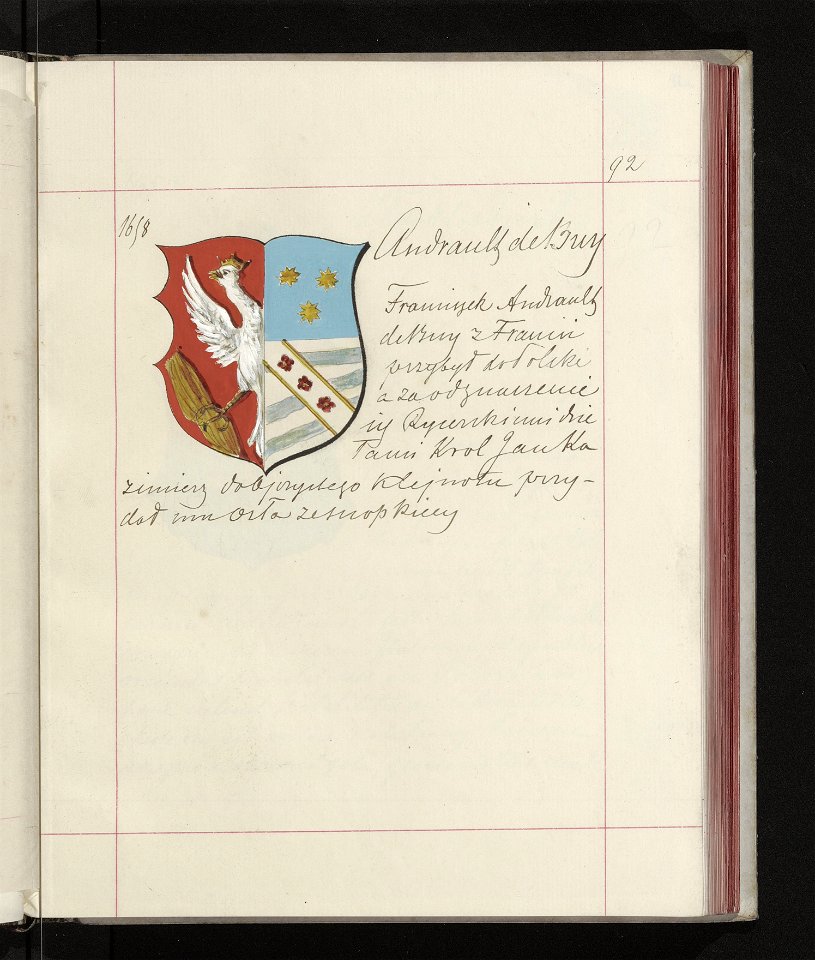 92
1658
Andrault de Buy
Franciszek Andrault
de Buy z Francii
przybył do Polski
a za odznaczenie
się Rycerskiemi dzie
łami Krol Jan Ka
zimierz do Ojczystego Klejnotu przy-
dał mu Orła ze snopkiem